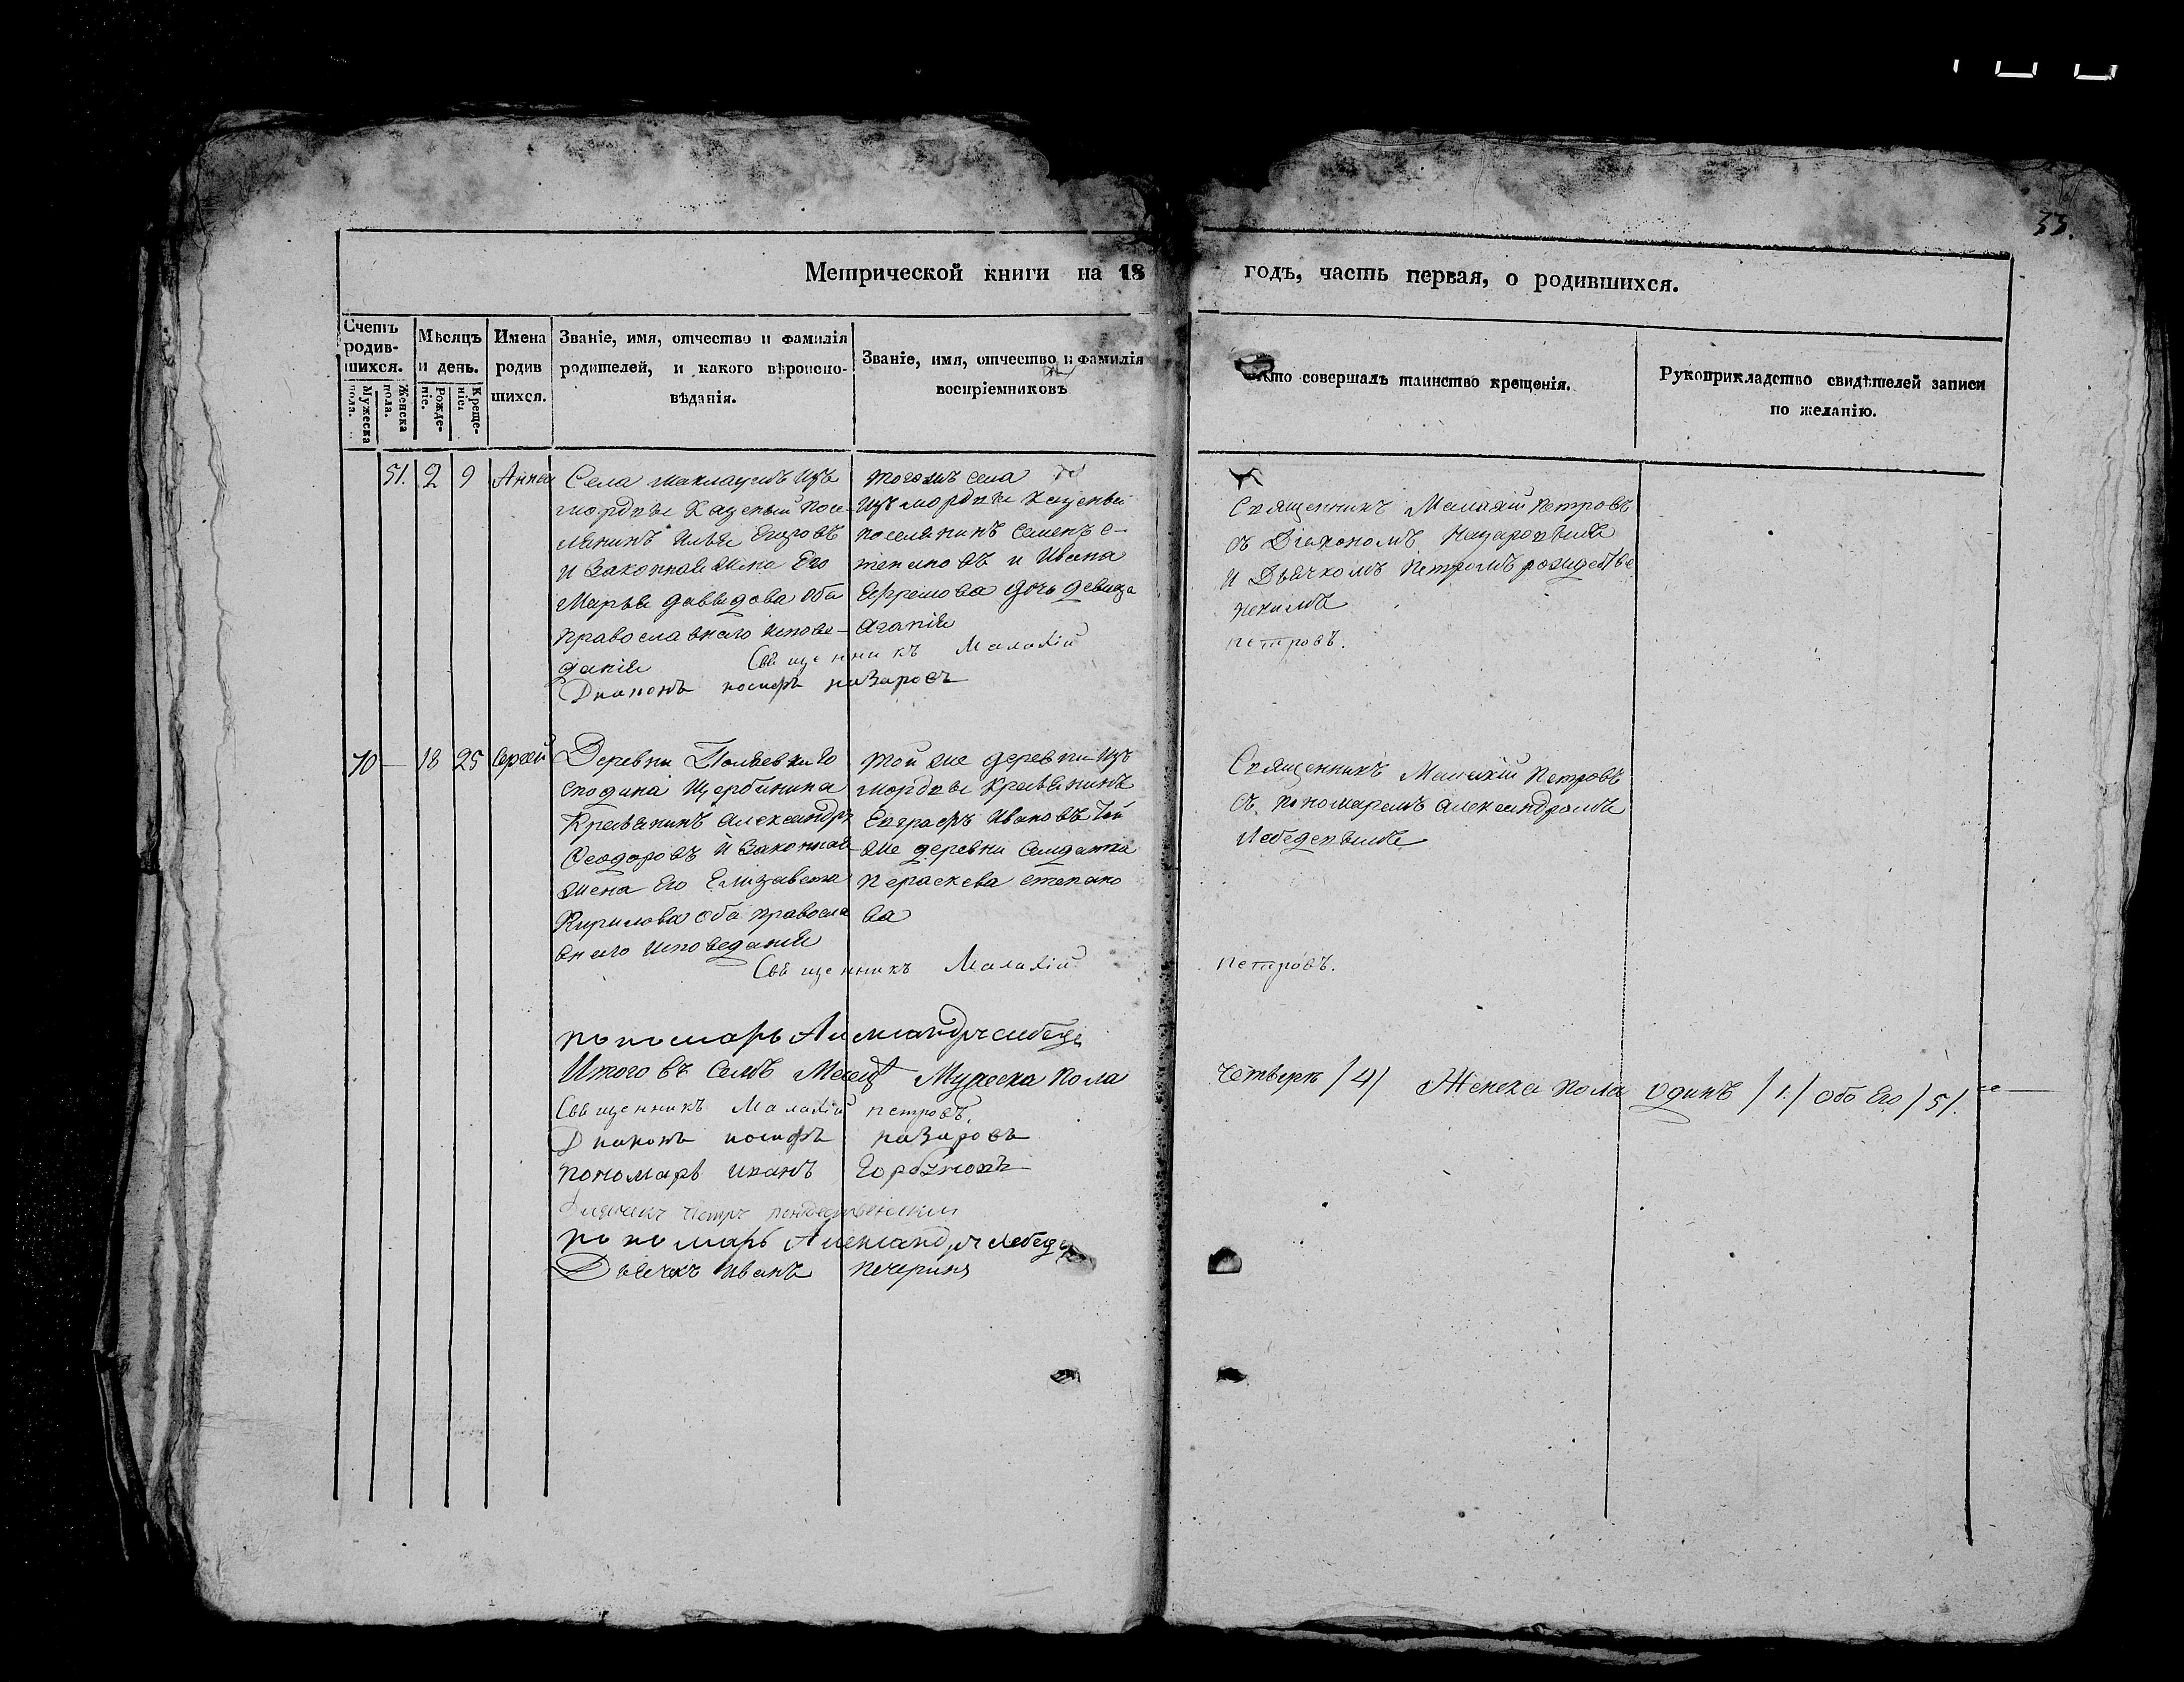 33.
Метрической книги на 18 годъ, часть первая, о родившихся.
Счетъ родившихся.
Мужеска пола.
Женска пола.
Мѣсяцъ и день.
Рожденіе.
Крещеніе.
Имена родившихся.
Званіе, имя, отчество и фамилія родителей, и какого вѣроисповѣданія.
Званіе, имя, отчество и фамилія воспріемниковъ
Кто совершалъ таинство крещенія.
Рукоприкладство свидѣтелей записи по желанію.
51. 2 9 Анна
Села Маклаушъ Изъ
мордвы Казеный посе-
лянинъ Илья Егоровъ
И Законная жена Его
Марья давыдова оба
православнаго испове-
данія
Тогожъ села
Изъ мордвы Казеный
поселянинъ Семенъ с-
тепановъ и Ивана
Ефремова дочь девица
Агапія
Священникъ Малахій Петровъ
съ Діакономъ Назаровымъ
И Дьячкомъ Петромъ рождестве
нскимъ
Священникъ Малахій петровъ.
Диаконъ иосифъ назаровъ
70 — 18 25 Сергей
Деревни Полаевки Го
сподина Щербинина
Крестьянинъ Александръ
Феодоровъ И Законная
жена Его Елизавета
Кирилова оба правосла
внаго исповеданія
Той же деревни Изъ
мордвы Крестьянинъ
Евграфъ Ивановъ Той
же деревни Салдатка
Параскева степано
ва
Священникъ Малахій Петровъ
съ пономаремъ Александромъ
Лебедевымъ
Священникъ Малахій петровъ.
пономарь
Итого въ Семъ Месецѣ Мужеска пола четверо /4/ Женска пола одинъ /1/ обо Его /5/.
Священникъ Малахій петровъ
Диаконъ иосифъ назаровъ
пономарь иванъ
Дьячекъ петръ рождественский
пономарь Александръ лебеде
Дьячекъ иванъ печеринъ